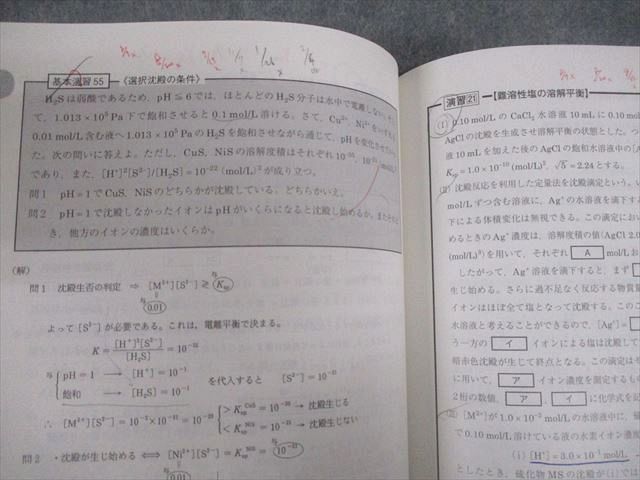 基本演習55 《選択沈殿の条件》
H₂Sは弱酸であるため、pH≦6では、ほとんどのH₂S分子は水中で電離しない
て、1.013×10⁵Pa下で飽和させると0.1mol/L溶ける。さて、Cu²⁺、Ni²⁺を
0.01mol/L含む液へ1.013×10⁵PaのH₂Sを飽和させながら通じて、pHを変化させ
た。次の問いに答えよ。ただし、CuS、NiSの溶解度積はそれぞれ
であり、また、[H⁺]²[S²⁻]/[H₂S]=10⁻²²(mol/L)²が成り立つ。
問1 pH=1でCuS、NiSのどちらかが沈殿している。どちらかいえ。
問2 pH=1で沈殿しなかったイオンはpHがいくらになると沈殿し始めるか。また
き、他方のイオンの濃度はいくらか。
(解)
問1 沈殿生否の判定 ⇒ [M²⁺][S²⁻]≷Ksp
0.01
よって[S²⁻]が必要である。これは、電離平衡で決まる。
K=[H⁺]²[S²⁻]/[H₂S]=10⁻²²
pH=1 → [H⁺]=10⁻¹
飽和 → [H₂S]=10⁻¹
を代入すると [S²⁻]=10⁻²¹
∴ [M²⁺][S²⁻]=10⁻²×10⁻²¹=10⁻²³
>Ksp CuS=10⁻³⁵ → 沈殿生じる
<Ksp NiS=10⁻²¹ → 沈殿生じない
問2 ・沈殿が生じ始める ⟺ [Ni²⁺][S²⁻]=Ksp NiS=10⁻²¹
0.01
演習21 【難溶性塩の溶解平衡】
(1) 0.10mol/LのCaCl₂水溶液10mLに0.10mol
AgClの沈殿を生成させ溶解平衡の状態とした。
液10mLを加えた後のAgClの飽和水溶液中の
Ksp=1.0×10⁻¹⁰(mol/L)²、√5=2.24とする。
沈殿反応を利用した定量法を沈殿滴定という。
mol/Lずつ含む溶液に、Ag⁺の水溶液を滴下す
下による体積変化は無視できる。この滴定におい
めるときのAg⁺濃度は、溶解度積の値(AgCl 2.0
(mol/L)³)を用いて、それぞれ A mol/L
したがって、Ag⁺溶液を滴下すると、まず
生じ始める。さらに過不足なく反応する物質量
イオンはほぼ全て塩となって沈殿する。この
水溶液と考えることができるので、[Ag⁺]=
う一方の イ イオンによる塩は沈殿して
暗赤色沈殿が生じて終点となる。この滴定は
に用いて、 ア イオン濃度を測定するも
2桁の数値、 ア 、 イ に化学式を記
[M²⁺]が1.0×10⁻²mol/Lの水溶液中に、
で0.10mol/L溶けている液の水素イオン濃度
(i) [H⁺]=3.0×10⁻¹mol/L
としたとき、硫化物MSの沈殿が(i)では